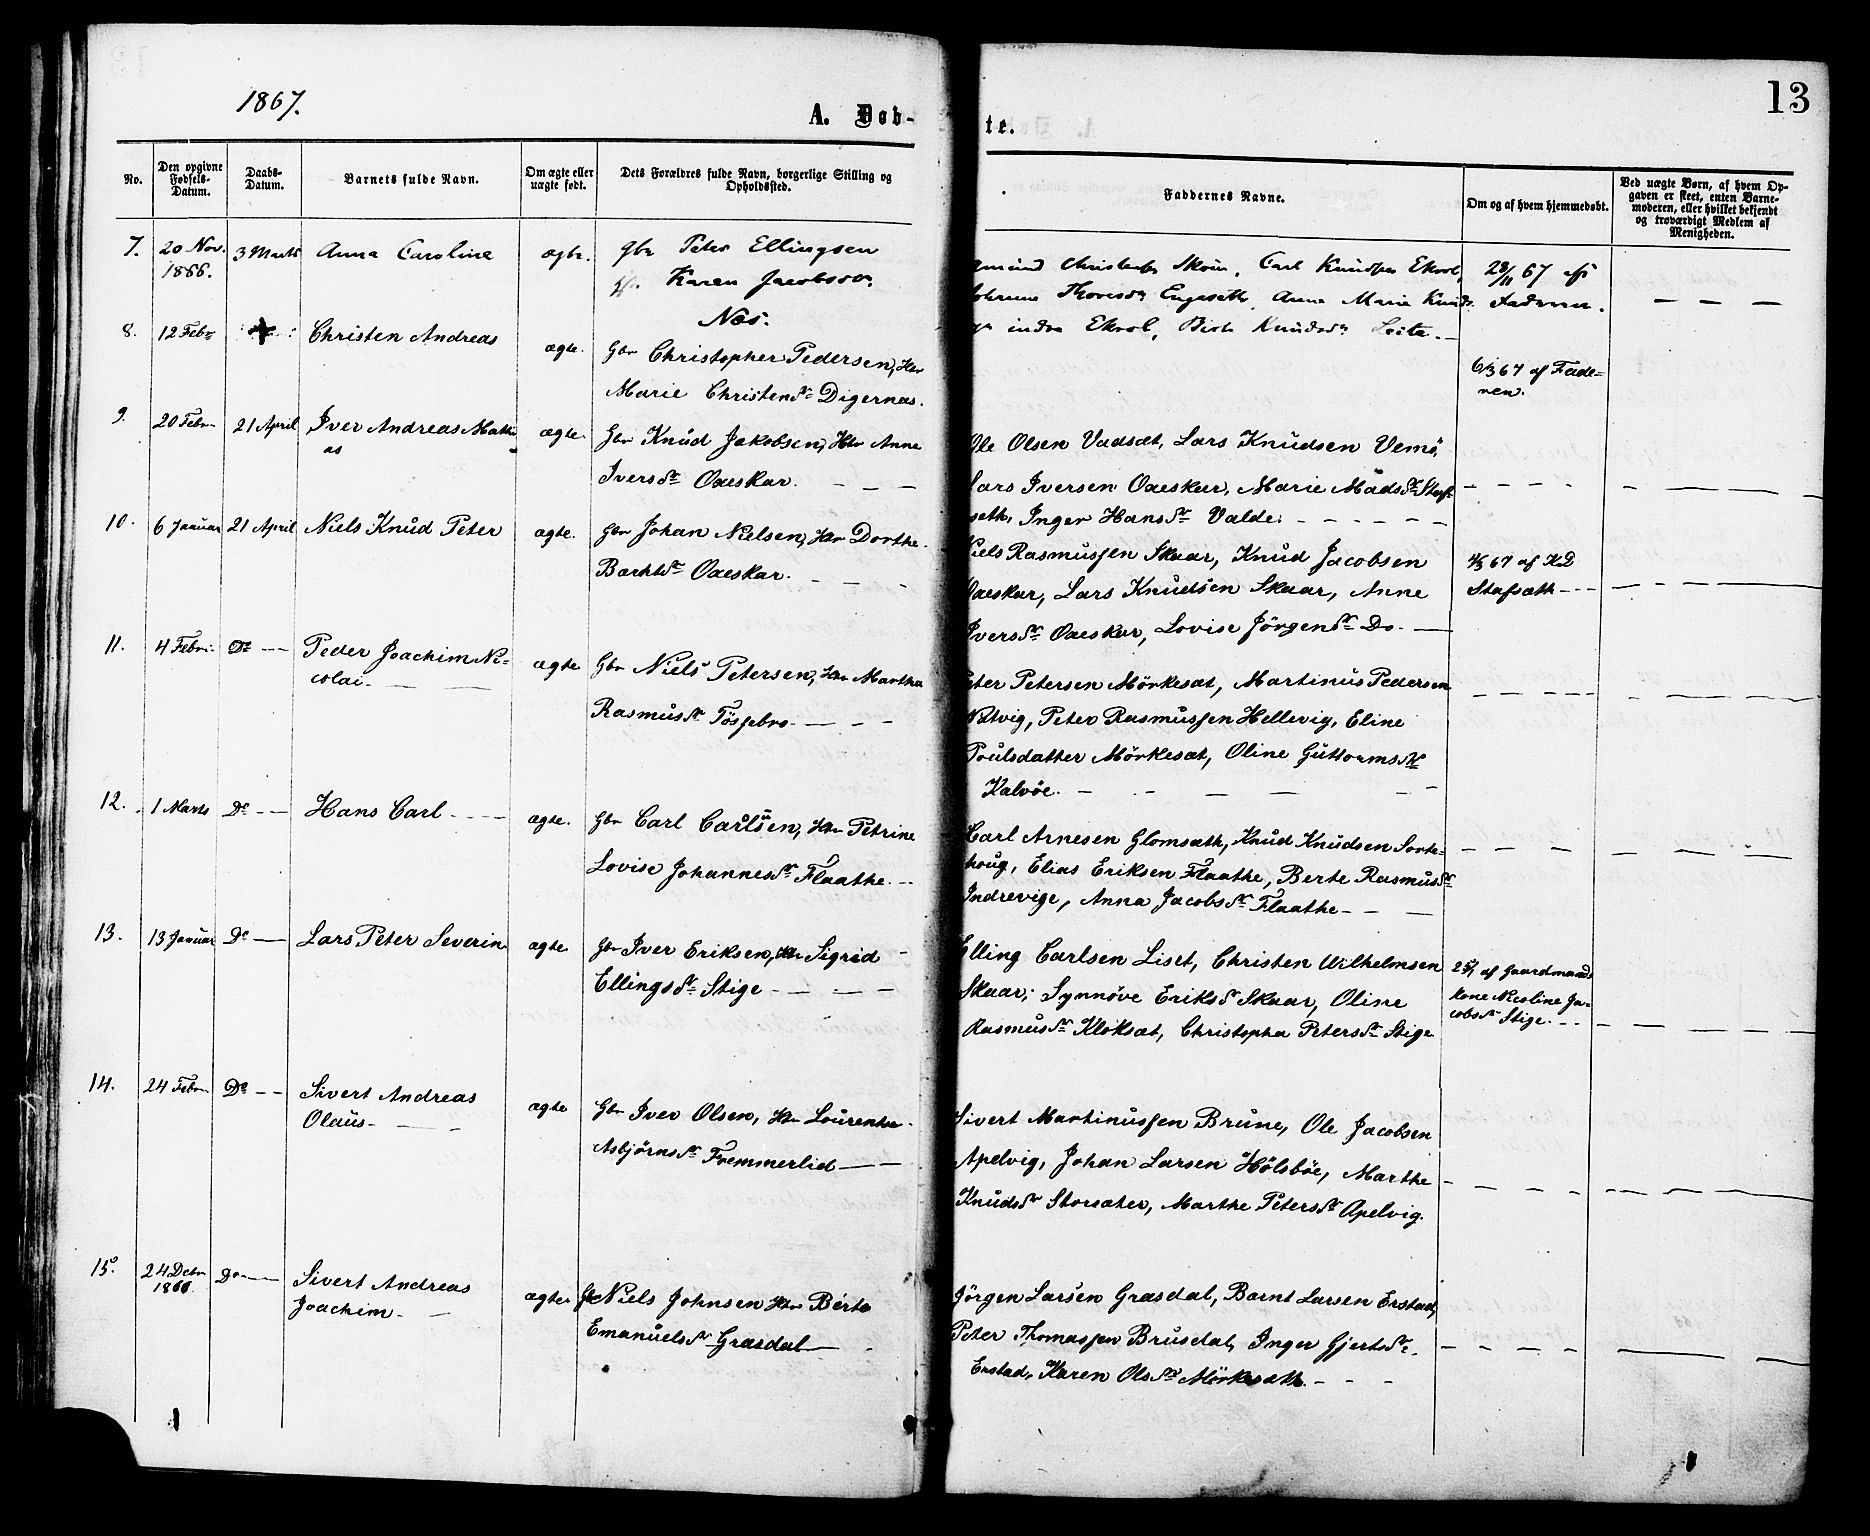 1867.
A. Døb-
te.
13
No.
Den opgivne
Fødsels-
Datum.
Daabs-
Datum.
Barnets fulde Navn.
Om ægte eller
uægte født.
Dets Forældres fulde Navn, borgerlige Stilling og
Opholdssted.
Faddernes Navne.
Om og af hvem hjemmedøbt.
Ved uægte Børn, af hvem Op-
gaven er skeet, enten Barne-
moderen, eller hvilket bekjendt
og troværdigt Medlem af
Menigheden.
7.
20 Nov.
1866.
3 Marts
Anna Caroline
ægte.
Gbr Peter Ellingsen
Karen Jacobsdr
Næs.
Carl Knudsen Ekrol,
Engeseth, Anne Marie Knuds
indre Ekrol, Knudsdr Leite.
67 af
Faderen.
8.
12 Febr
Christen Andreas
ægte.
Gbr Christopher Pedersen, Hsr
Marie Christensdr Digernæs.
6/3 67 af Fade=
ren.
9.
20 Febr
21 April
Iver Andreas Mathi
as
ægte.
Gbr Knud Jakobsen, Hsr Anne
Iversdr Oxeskar.
Ole Olsen Vadsæt, Lars Knudsen Vemö,
Lars Iversen Oxeskar, Marie Madsdr Staf-
seth, Inger Hansdr Valde.
10.
6 Januar
21 April
Niels Knud Peter
ægte.
Gbr Johan Nielsen, Hsr Dorthe
Oxeskar.
Niels Rasmussen Skaar, Knud Jacobsen
Oxeskar, Lars Knudsen Skaar, Anne
Iversdr Oxeskar, Lovise Jörgensdr Do.
4/3 67 af KD
Stafsæth
11.
4 Febr.
Do
Peder Joachim Ni=
colai
ægte
Gbr Niels Petersen, Hsr Martha
Rasmusdr Tössebro
Peter Petersen Mörkesæt, Martinus Pedersen
Peter Rasmussen Hellevig, Eline
Poulsdatter Mörkesæt, Oline Guttormsdr
Kalvöe.
12.
1 Marts
Do
Hans Carl
ægte.
Gbr Carl Carlsen, Hsr Petrine
Lovise Johannesdr Flaathe.
Carl Arnesen Glomsæth, Knud Knudsen Sorte=
houg, Elias Eriksen Flaathe, Berte Rasmusdr
Indrevige, Anna Jacobsdr Flaathe
13.
13 Januar
Do
Lars Peter Severin
ægte
Gbr Iver Eriksen, Hsr Sigrid
Ellingsdr Stige
Elling Carlsen Liset, Christen Wilhelmsen
Skaar, Synnöve Eriksdr Skaar, Oline
Rasmusdr Kloksæt, Christopha Petersdr Stige
af Gaardmands
kone Nicoline Ja=
cobsdr Stige.
14.
24 Febr
Do
Sivert Andreas
Olaus
ægte
Gbr Iver Olsen, Hsr Lourentse
Asbjørnsdr Fremmerlid
Sivert Martinussen Brune, Ole Jacobsen
Apelvig, Johan Larsen Hölsböe, Marthe
Knudsdr Storsæter, Marthe Petersdr Apelvig.
15.
24 Decbr
1866
Do
Sivert Andreas
Joachim
ægte
Gbr Niels Johnsen Hsr Berte
Emanuelsdr Grasdal
Jörgen Larsen Grasdal, Bernt Larsen Erstad,
Peter Thomassen Brusdal, Inger Gjertsdr
Erstad, Karen Olsdr Mörkesæth.